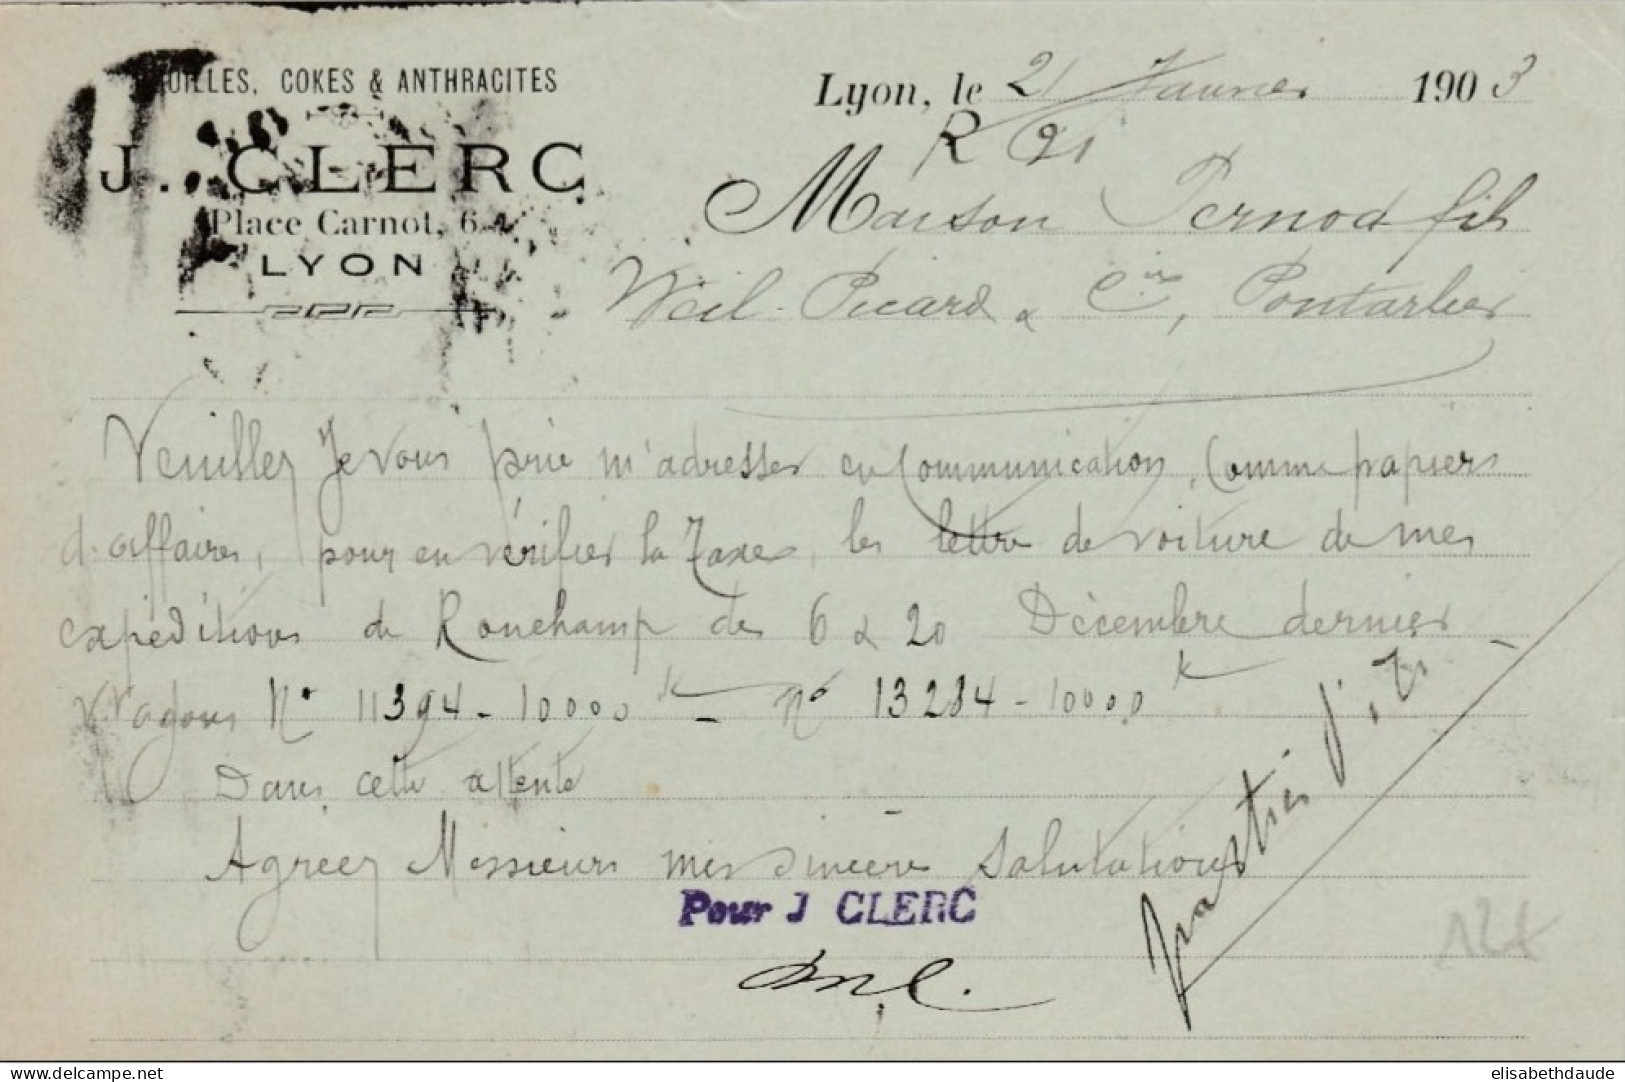 OUILLES, COKES & ANTHRACITES
J. CLERC
Place Carnot, 6
LYON
Lyon, le 21 Janvier 1903
R 21
Maison Pernod fils
Weil-Picard & Cie, Pontarlier
Veuillez je vous prie m'adresser en communication, comme papiers
d'affaires, pour en vérifier la taxe, les lettre de voiture de mes
expéditions de Ronchamp des 6 & 20 Décembre dernier
Wagons No 11394 - 10000 k - No 13284 - 10000 k
Dans cette attente
Agréez Messieurs mes sincères salutations
Pour J CLERC
www.delcampe.net
elisabethdaude